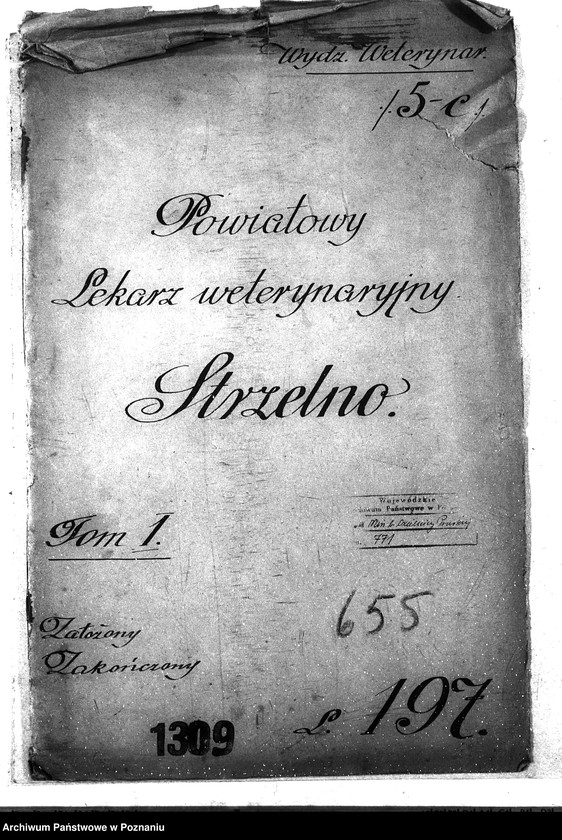 Wydz. Weterynar.
/5-c/.
Powiatowy
Lekarz weterynaryjny.
Strzelno.
Tom I.
Wojewódzkie
Państwowe w
Min. b. Dzielnicy Pruskiej
771
655
Założony
Zakończony
1309
L. 197.
Archiwum Państwowe w Poznaniu